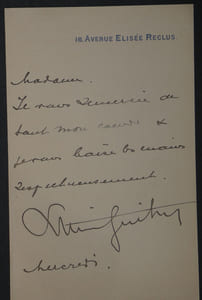 18, AVENUE ELISÉE RECLUS.
Madame.
Je vous remercie de
tout mon coeur &
je vous baise les mains
respectueusement.
Guitry
Mercredi.